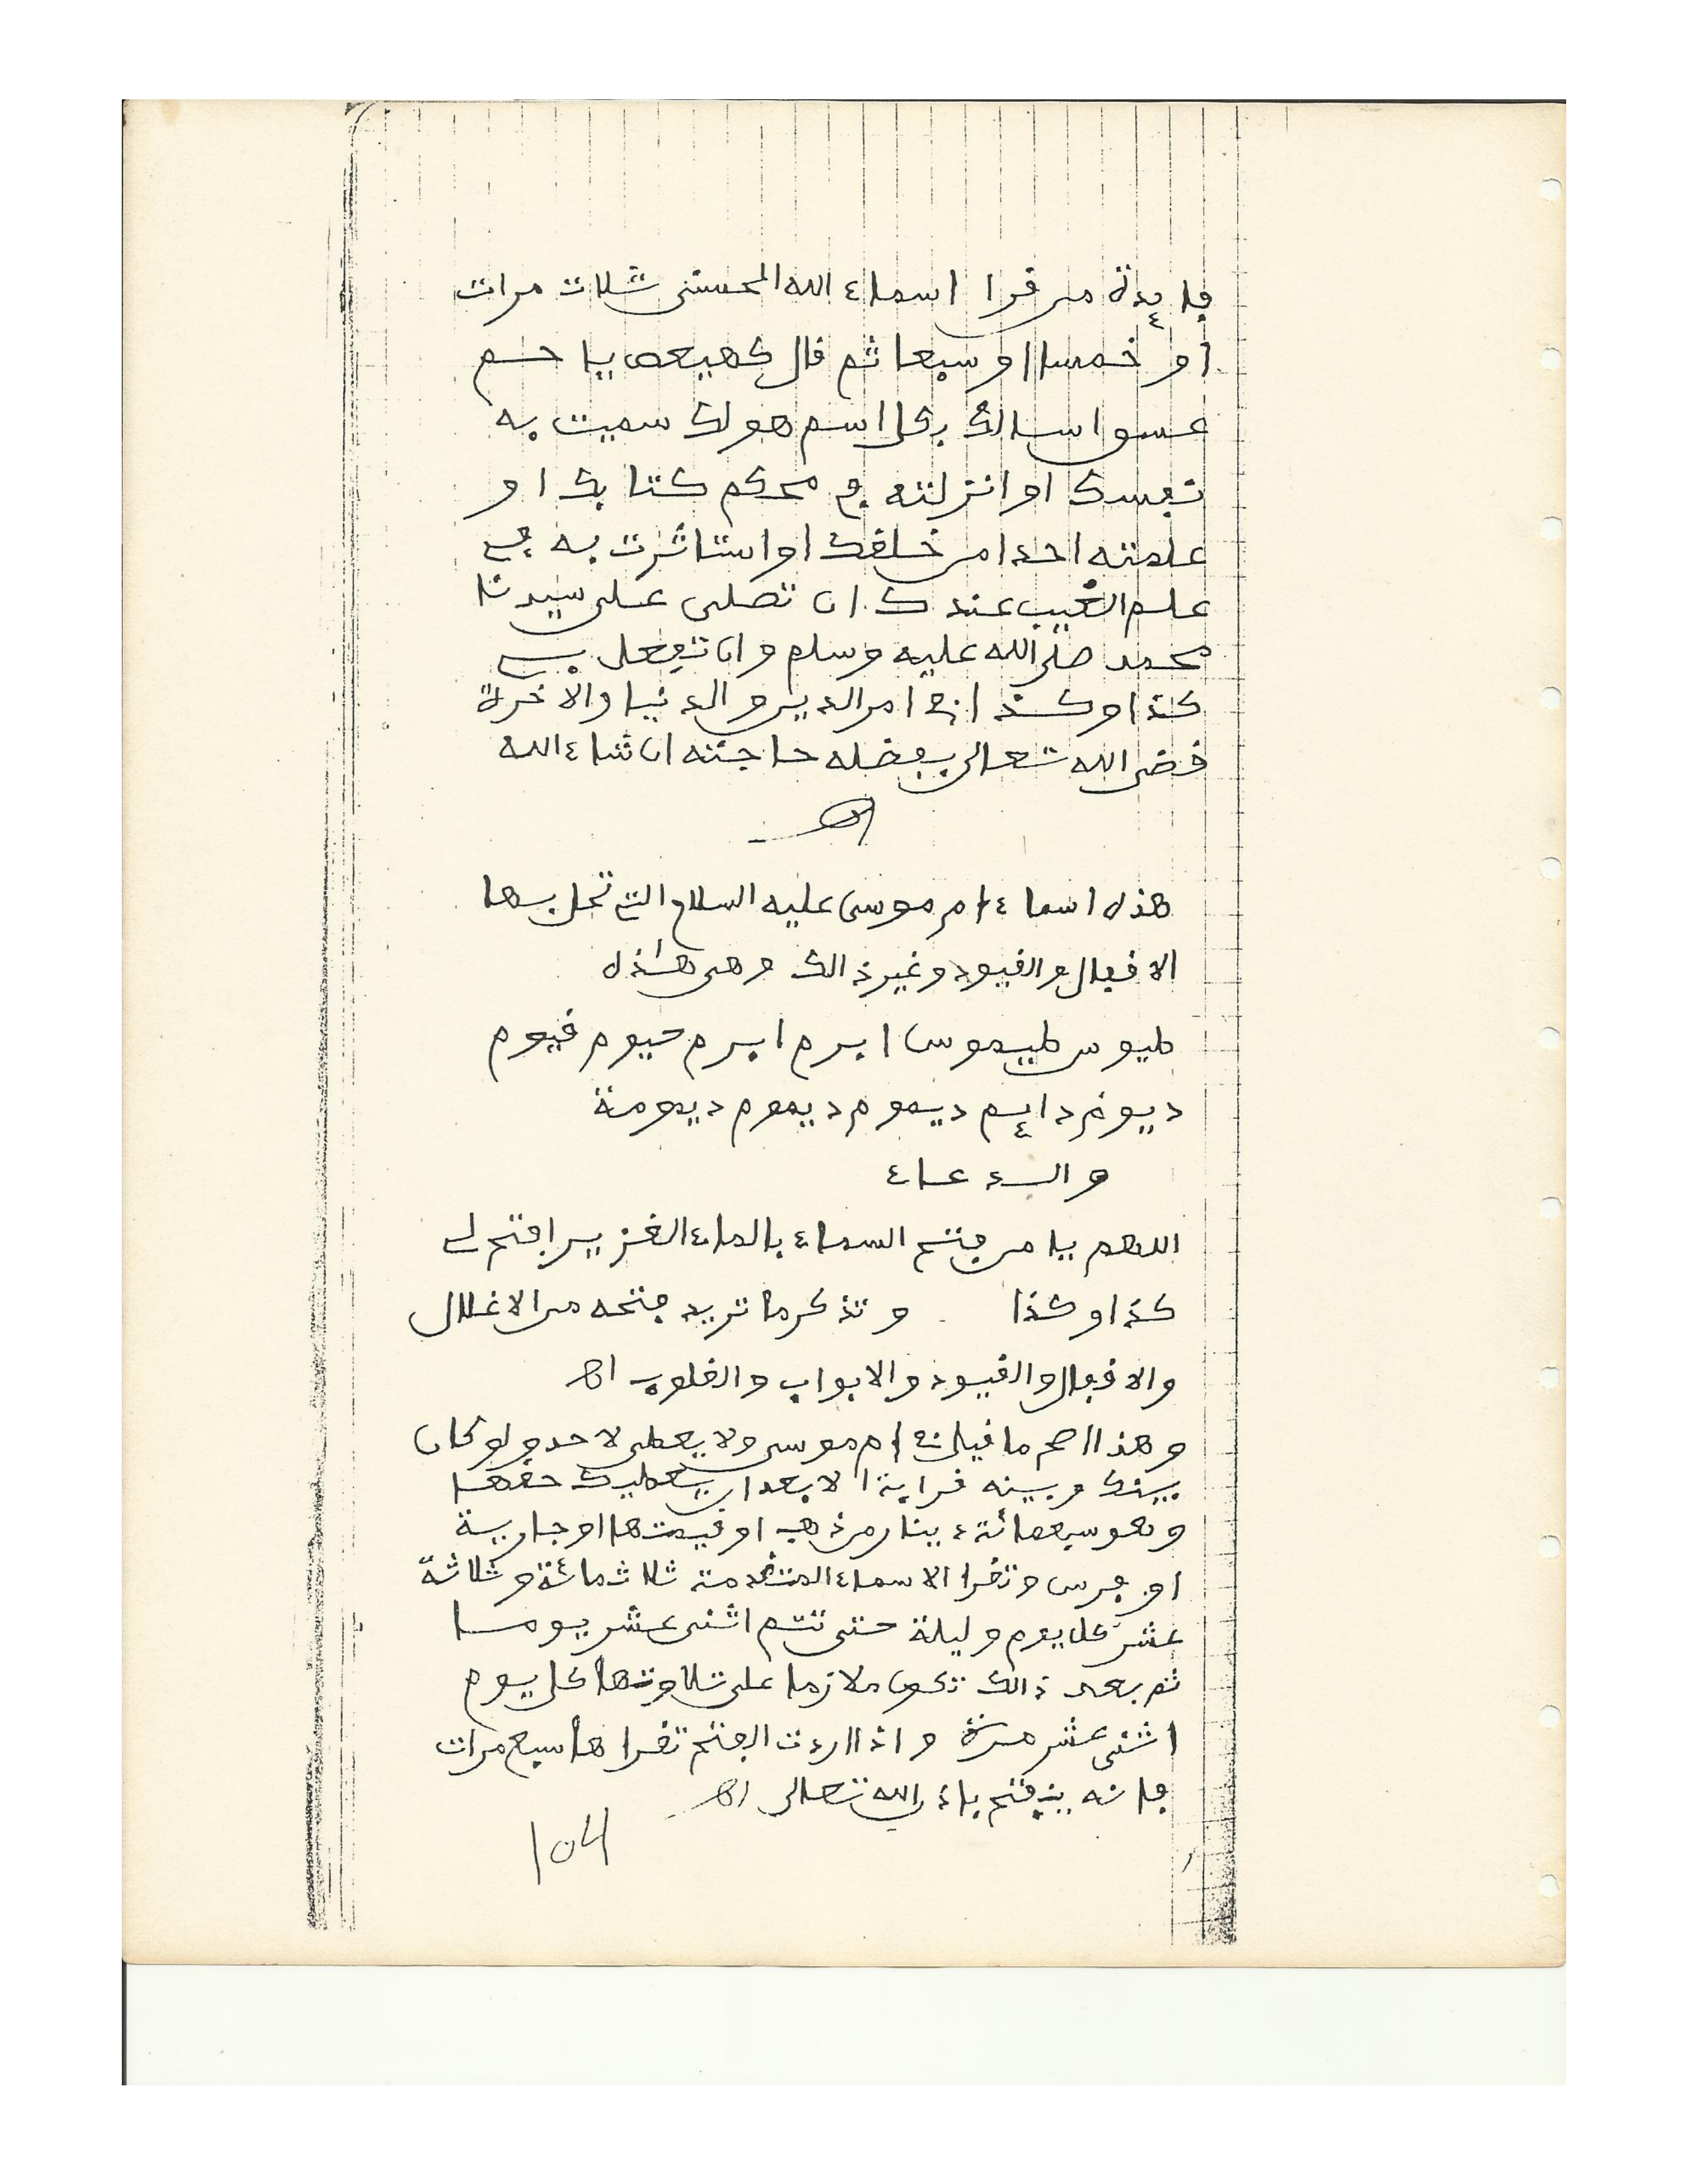 فايدة من قرا اسماء الله الحسنى ثلاث مرات
او خمسا او سبعا ثم قال كهيعص يا حم
عسق اسالك بكل اسم هو لك سميت به
نفسك او انزلته في محكم كتابك او
علمته احدا من خلقك او استاثرت به في
علم الغيب عندك ان تصلى على سيدنا
محمد صلى الله عليه وسلم وان تفعل بي
كذا وكذا في امر الدين والدنيا والاخرة
قضى الله تعالى بفضله حاجته ان شاء الله
اهـ
هذه اسماء ام موسى عليه السلام التي تحل بها
الاقفال والقيود وغير ذالك وهى هذه
طيوس طيموس ابرم ابرم حيوم قيوم
ديوم دايم ديموم ديموم ديمومة
والدعاء
اللهم يا من فتح السماء بالماء الغزير افتح لي
كذا وكذا وتذكر ما تريد فتحه من الاغلال
والاقفال والقيود والابواب والقلوب اهـ
وهذا اصح ما قيل في ام موسى ولا يعطى لاحد ولو كان
بينك وبينه قرابة الا بعد ان يعطيك حقها
وهو سبعمائة دينار من ذهب او قيمتها او جارية
او فرس وتقرا الاسماء المتقدمة ثلاثمائة وثلاثة
عشر كل يوم وليلة حتى تتم اثنى عشر يوما
ثم بعد ذالك تكون ملازما على تلاوتها كل يوم
اثنى عشر مرة واذا اردت الفتح تقراها سبع مرات
فانه ينفتح باذن الله تعالى اهـ
104